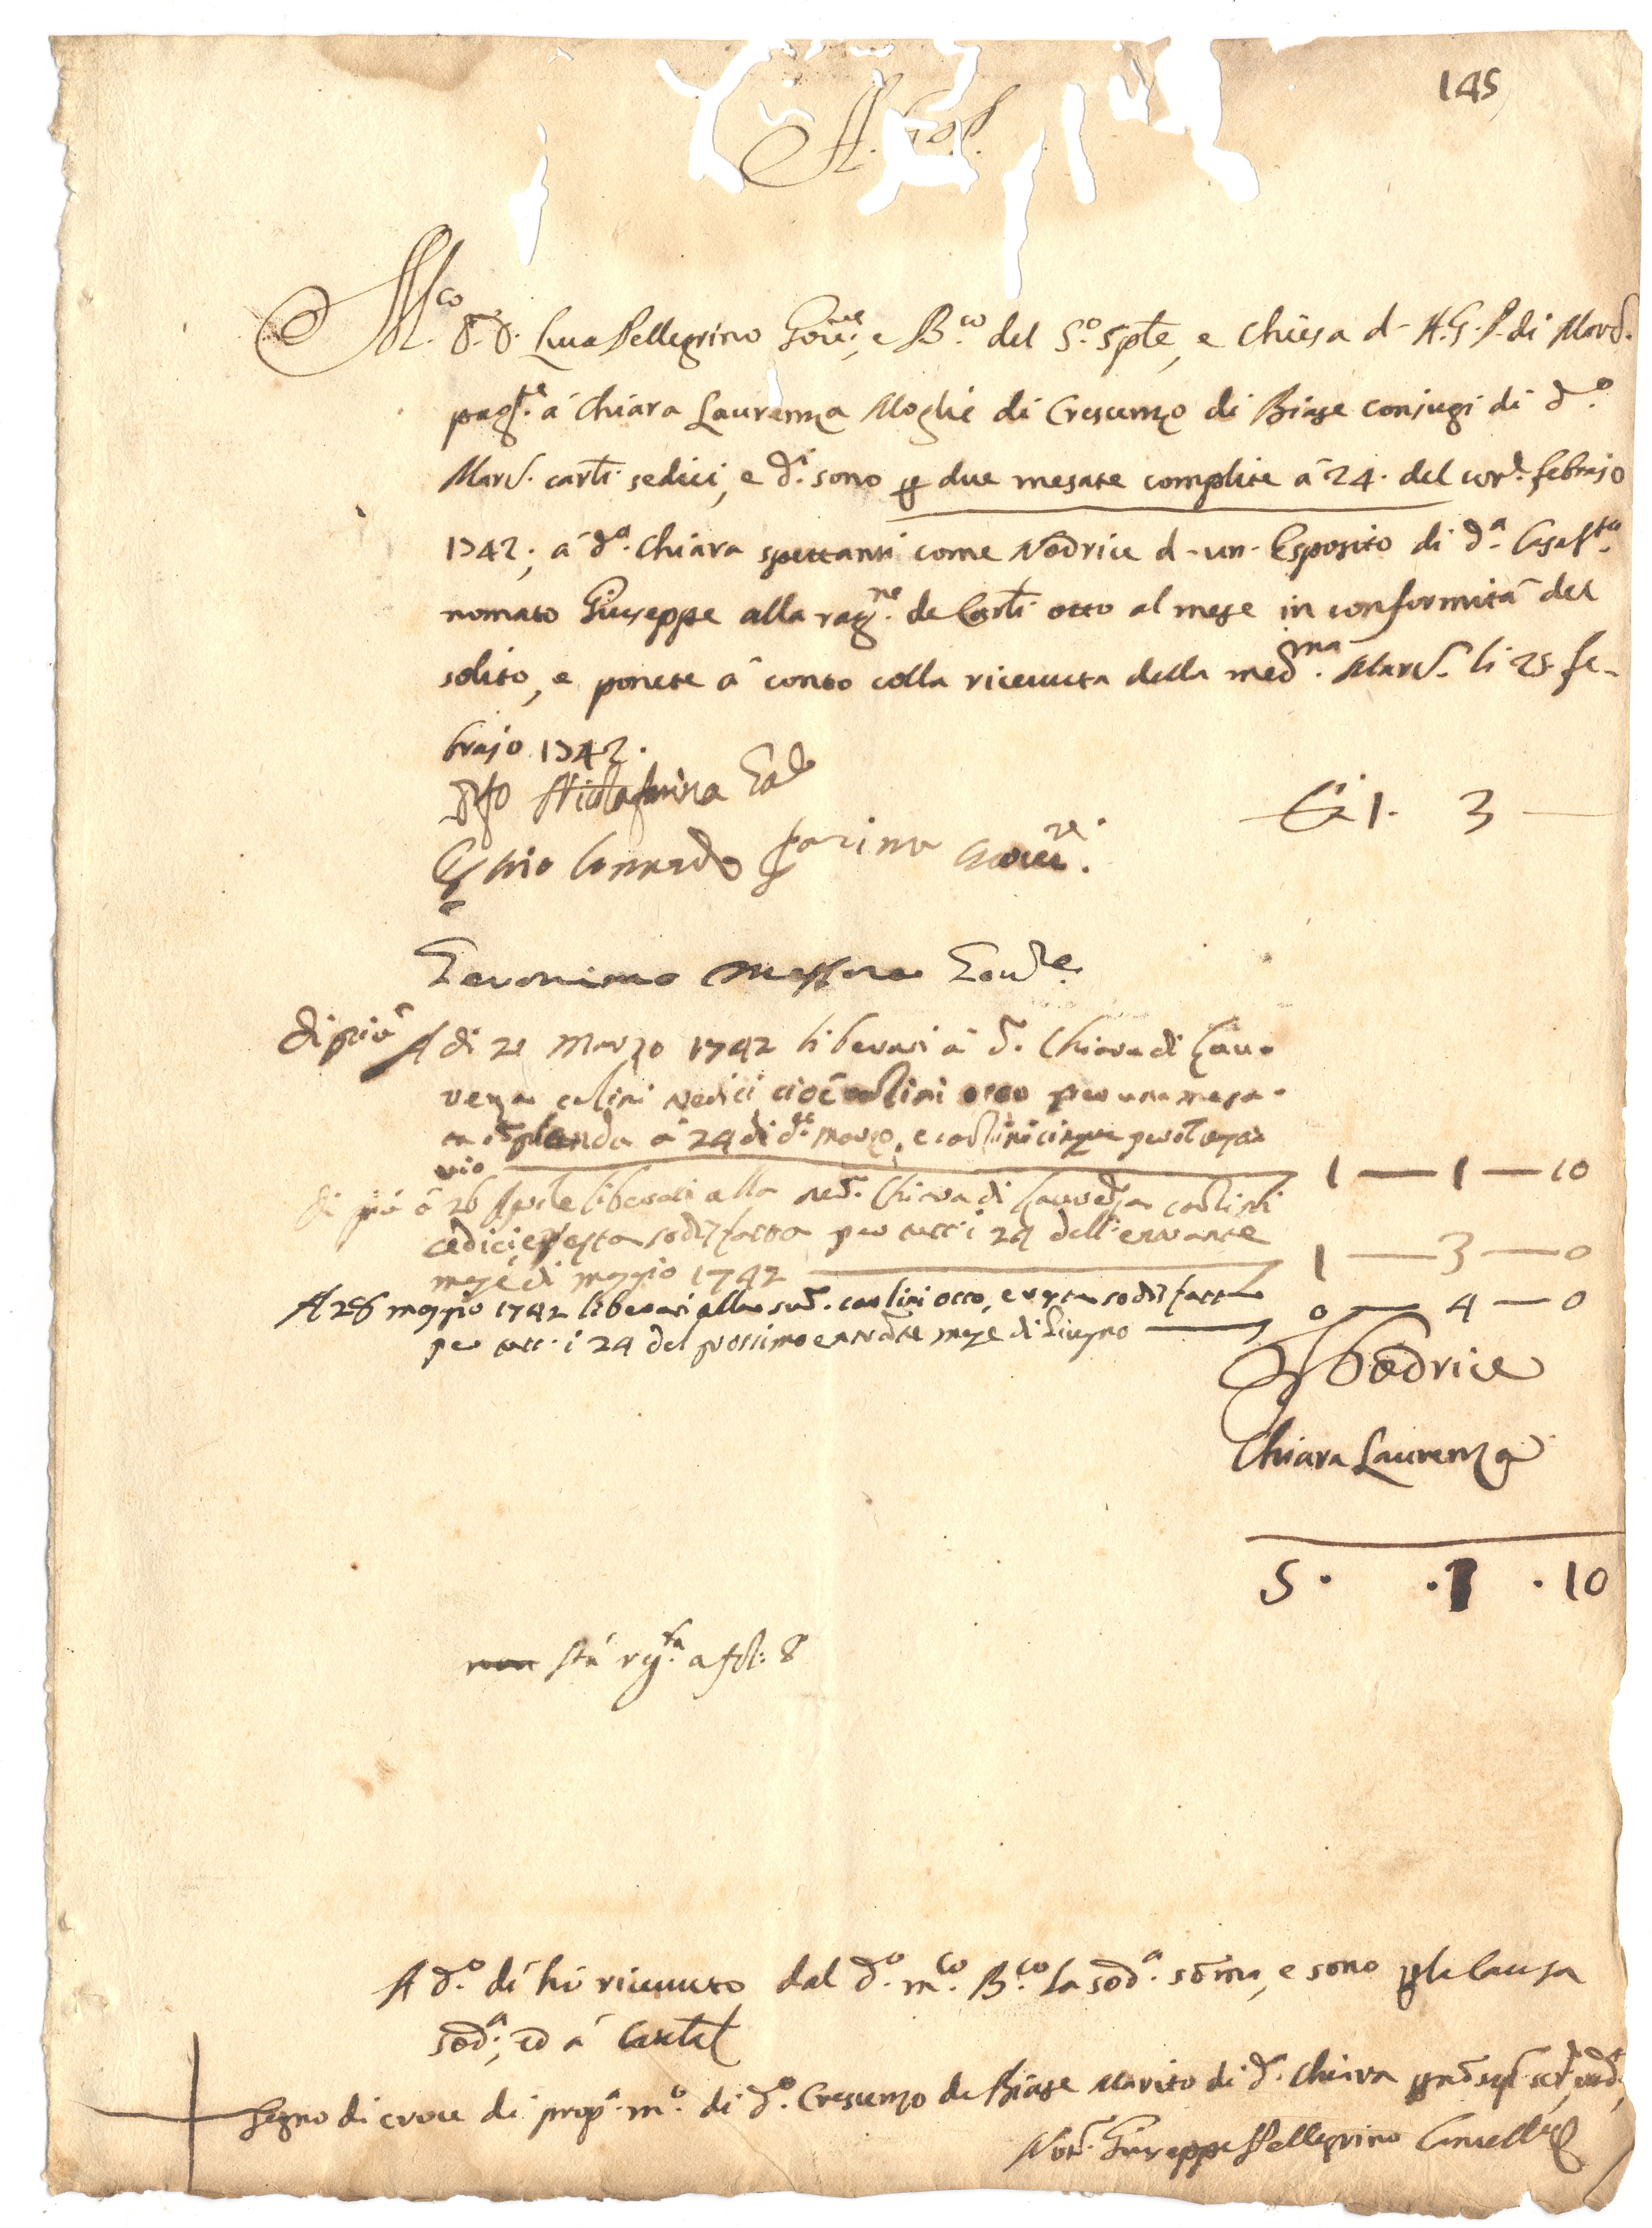 145
A. G. P.
M.co D. D. Luca Pellegrino Gov.re, e B.co del S.o Sple, e Chiesa d- A. G. P. di Mard.
pag.te á Chiara Laurenza Moglie di Crescenzo di Biase conjugi di d.o
Mard. carli: sedici, e d.i sono p due mesate complite á 24. del cor.te febrajo
1742; á d.a Chiara spettanti come Nodrice d-un-Esposito di d.a Casa S.ta
nomato Giuseppe alla rag.ne de Carli: otto al mese in conformitá del
solito, e ponete á conto colla ricevuta della med.ma Mard. li 25. fe-
brajo 1742.
Farina
1. 3
Conrado Farina Gover.re
Geronimo Gov.re
di piú A di 21 Marzo 1742 liberati á d. Chiara di Lau-
renza carlini sedici cioé carlini otto per una mesa-
ta á 24 di d.o marzo, e carlini cinque per
1 — 1 — 10
di piú á 26 Aprile liberati alla med. Chiara di Laurenza carlini
sedici, e resta sodisfatta per tutt'i 24 dell'entrante
mese di maggio 1742 1 — 3 — 0
A 28 maggio 1742 liberati alla sud. carlini otto, e resta sodisfatta
per tutt'i 24 del prossimo entrante mese di Giugno 0 — 4 — 0
Nodrice
Chiara Laurenza
5 . . 1 . 10
non stá reg.ta a fol: 8
A d.o dí hó ricevuto dal d.o m.co B.co la sod.a soma, e sono p la causa
sod.a; ed á Cautel
Segno di croce di prop.a m.o di d.o Crescenzo de Biase Marito di d. Chiara
Not. Giuseppe Pellegrino Cancell.re